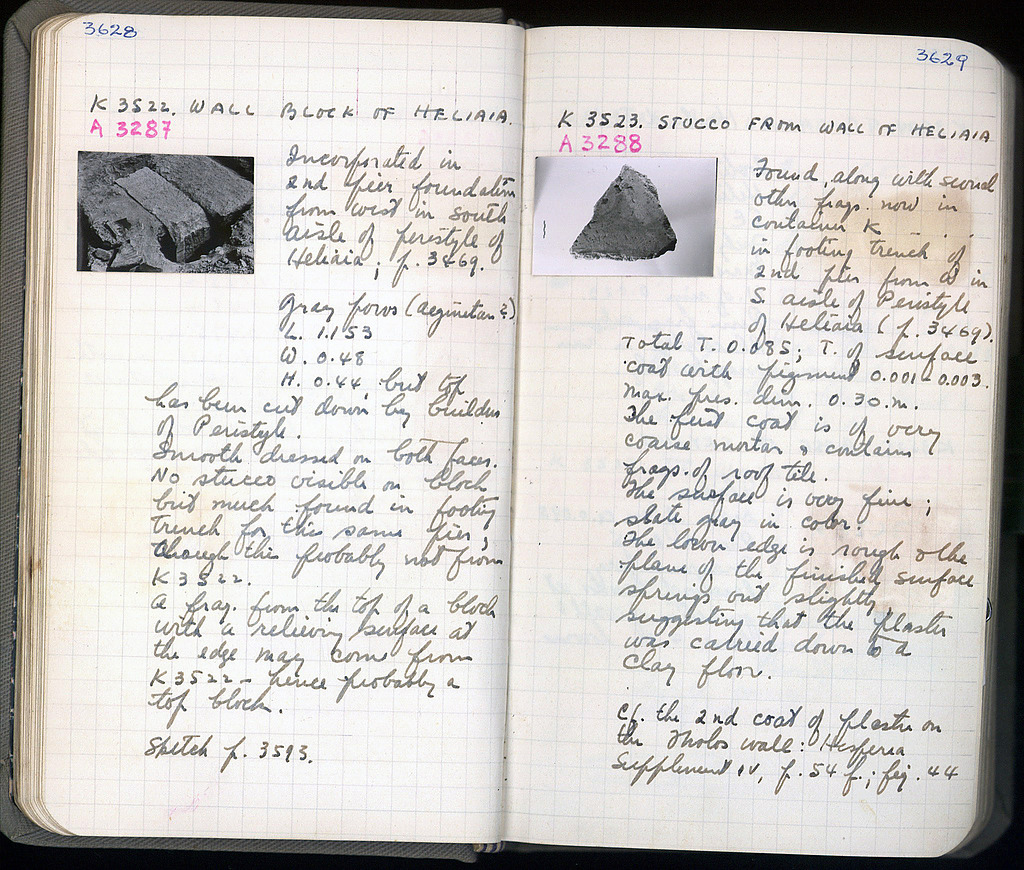 3628
K 3522. WALL BLOCK OF HELIAIA.
A 3287
Incorporated in
2nd pier foundation
from west in south
aisle of peristyle of
Heliaia, p. 3469.
Gray poros (Aeginetan?)
L. 1.153
W. 0.48
H. 0.44, but top
has been cut down by builders
of Peristyle.
Smooth dressed on both faces.
No stucco visible on block
but much found in footing
trench for this same pier,
though this probably not from
K 3522.
A frag. from the top of a block
with a relieving surface at
the edge may come from
K 3522 - hence probably a
top block.
Sketch p. 3593.
3629
K 3523. STUCCO FROM WALL OF HELIAIA
A 3288
Found, along with several
other frags. now in
container K
in footing trench of
2nd pier from W in
S. aisle of Peristyle
of Heliaia (p. 3469).
Total T. 0.085; T. of surface
coat with pigment 0.001-0.003.
Max. pres. dim. 0.30 m.
The first coat is of very
coarse mortar & contains
frags. of roof tile.
The surface is very fine;
slate gray in color.
The lower edge is rough & the
plane of the finished surface
springs out slightly,
suggesting that the plaster
was carried down to a
clay floor.
Cf. the 2nd coat of plaster on
the Tholos wall: Hesperia
Supplement IV, p. 54 f.; fig. 44